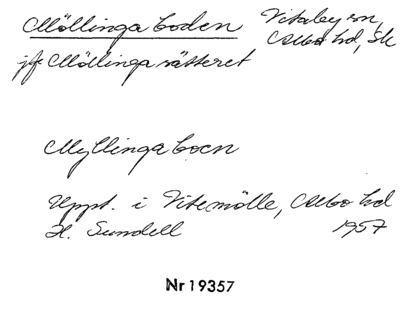 Möllinga boden Vitaby sn,
Albo hd, Sk
jfr Möllinga sätteret
Myllingaboen
Uppt. i Vitemölle, Albo hd
H. Sundell 1957
Nr 19357